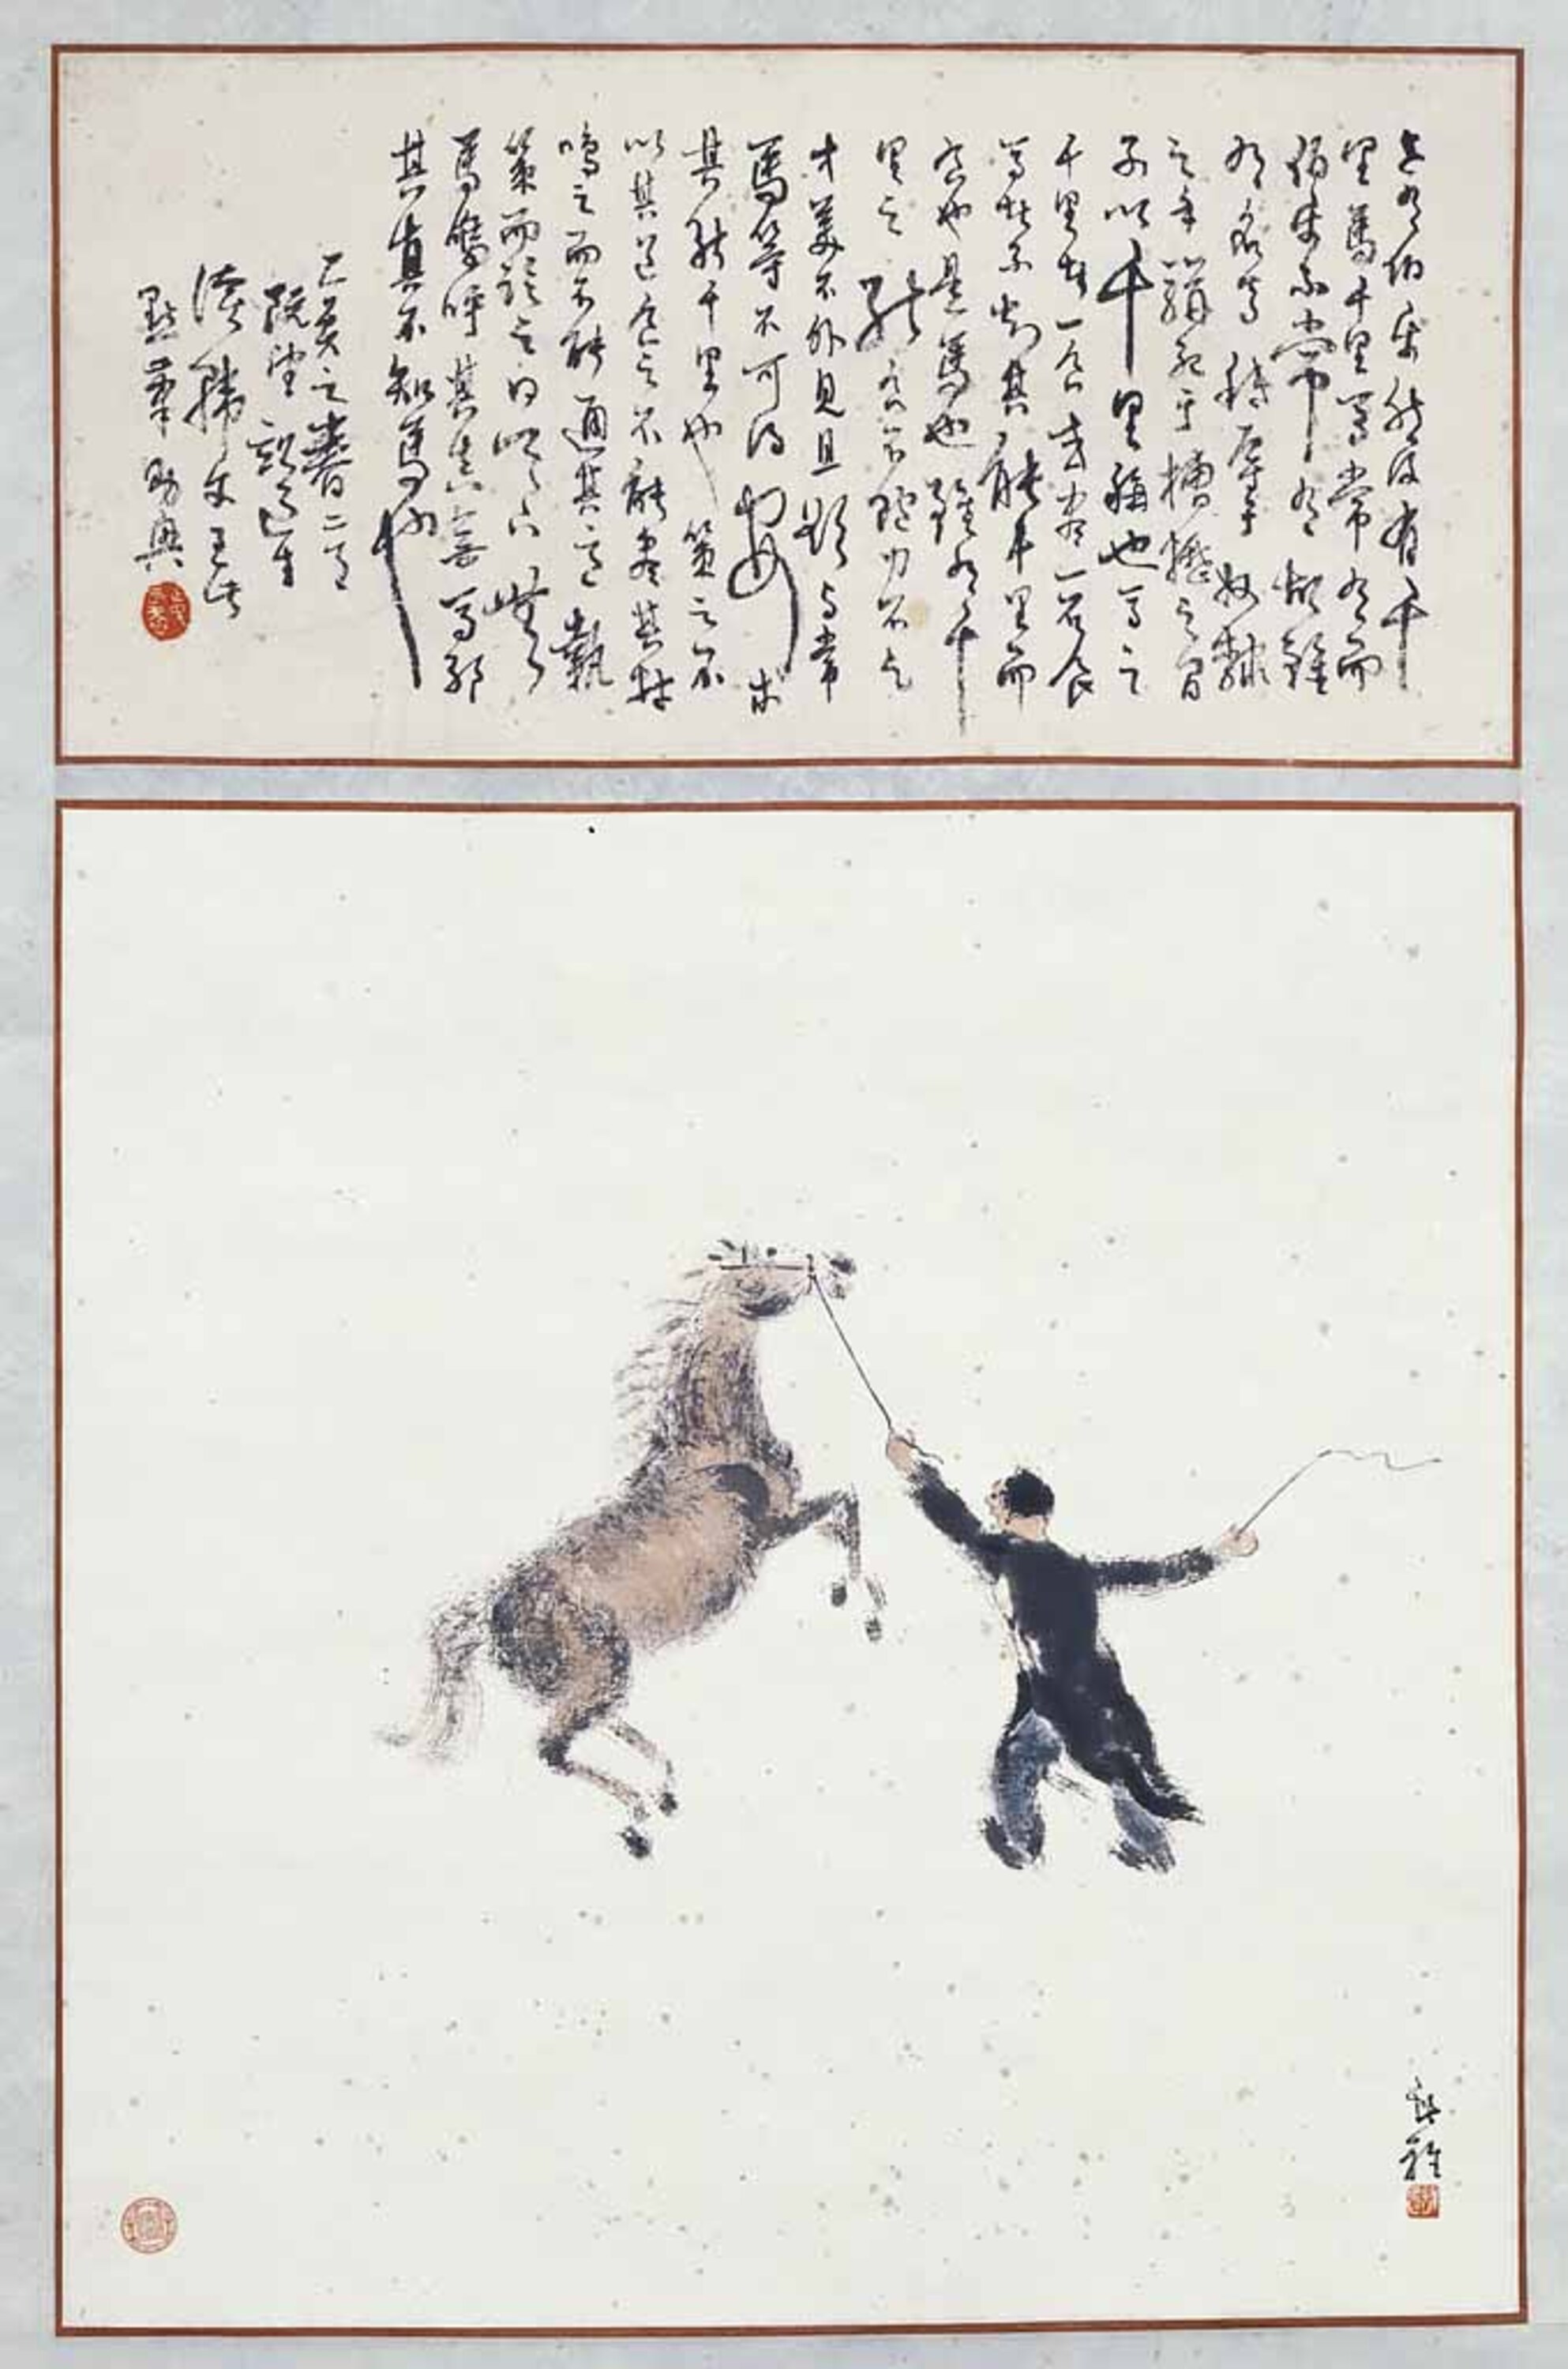 世有伯樂然後有千
里馬千里馬常有而
伯樂不常有故雖
有名馬秖辱于奴隸
之手駢死于槽櫪之間
不以千里稱也馬之
千里者一食或盡一石食
馬者不知其能千里而
食也是馬也雖有千
里之能食不飽力不足
才美不外見且欲與常
馬等不可得安求
其能千里也策之不
以其道食之不能盡其材
鳴之而不能通其意執
策而臨之曰天下無
馬嗚呼其真無馬邪
其真不知馬也
乙亥之春二月
既望
點筆助興